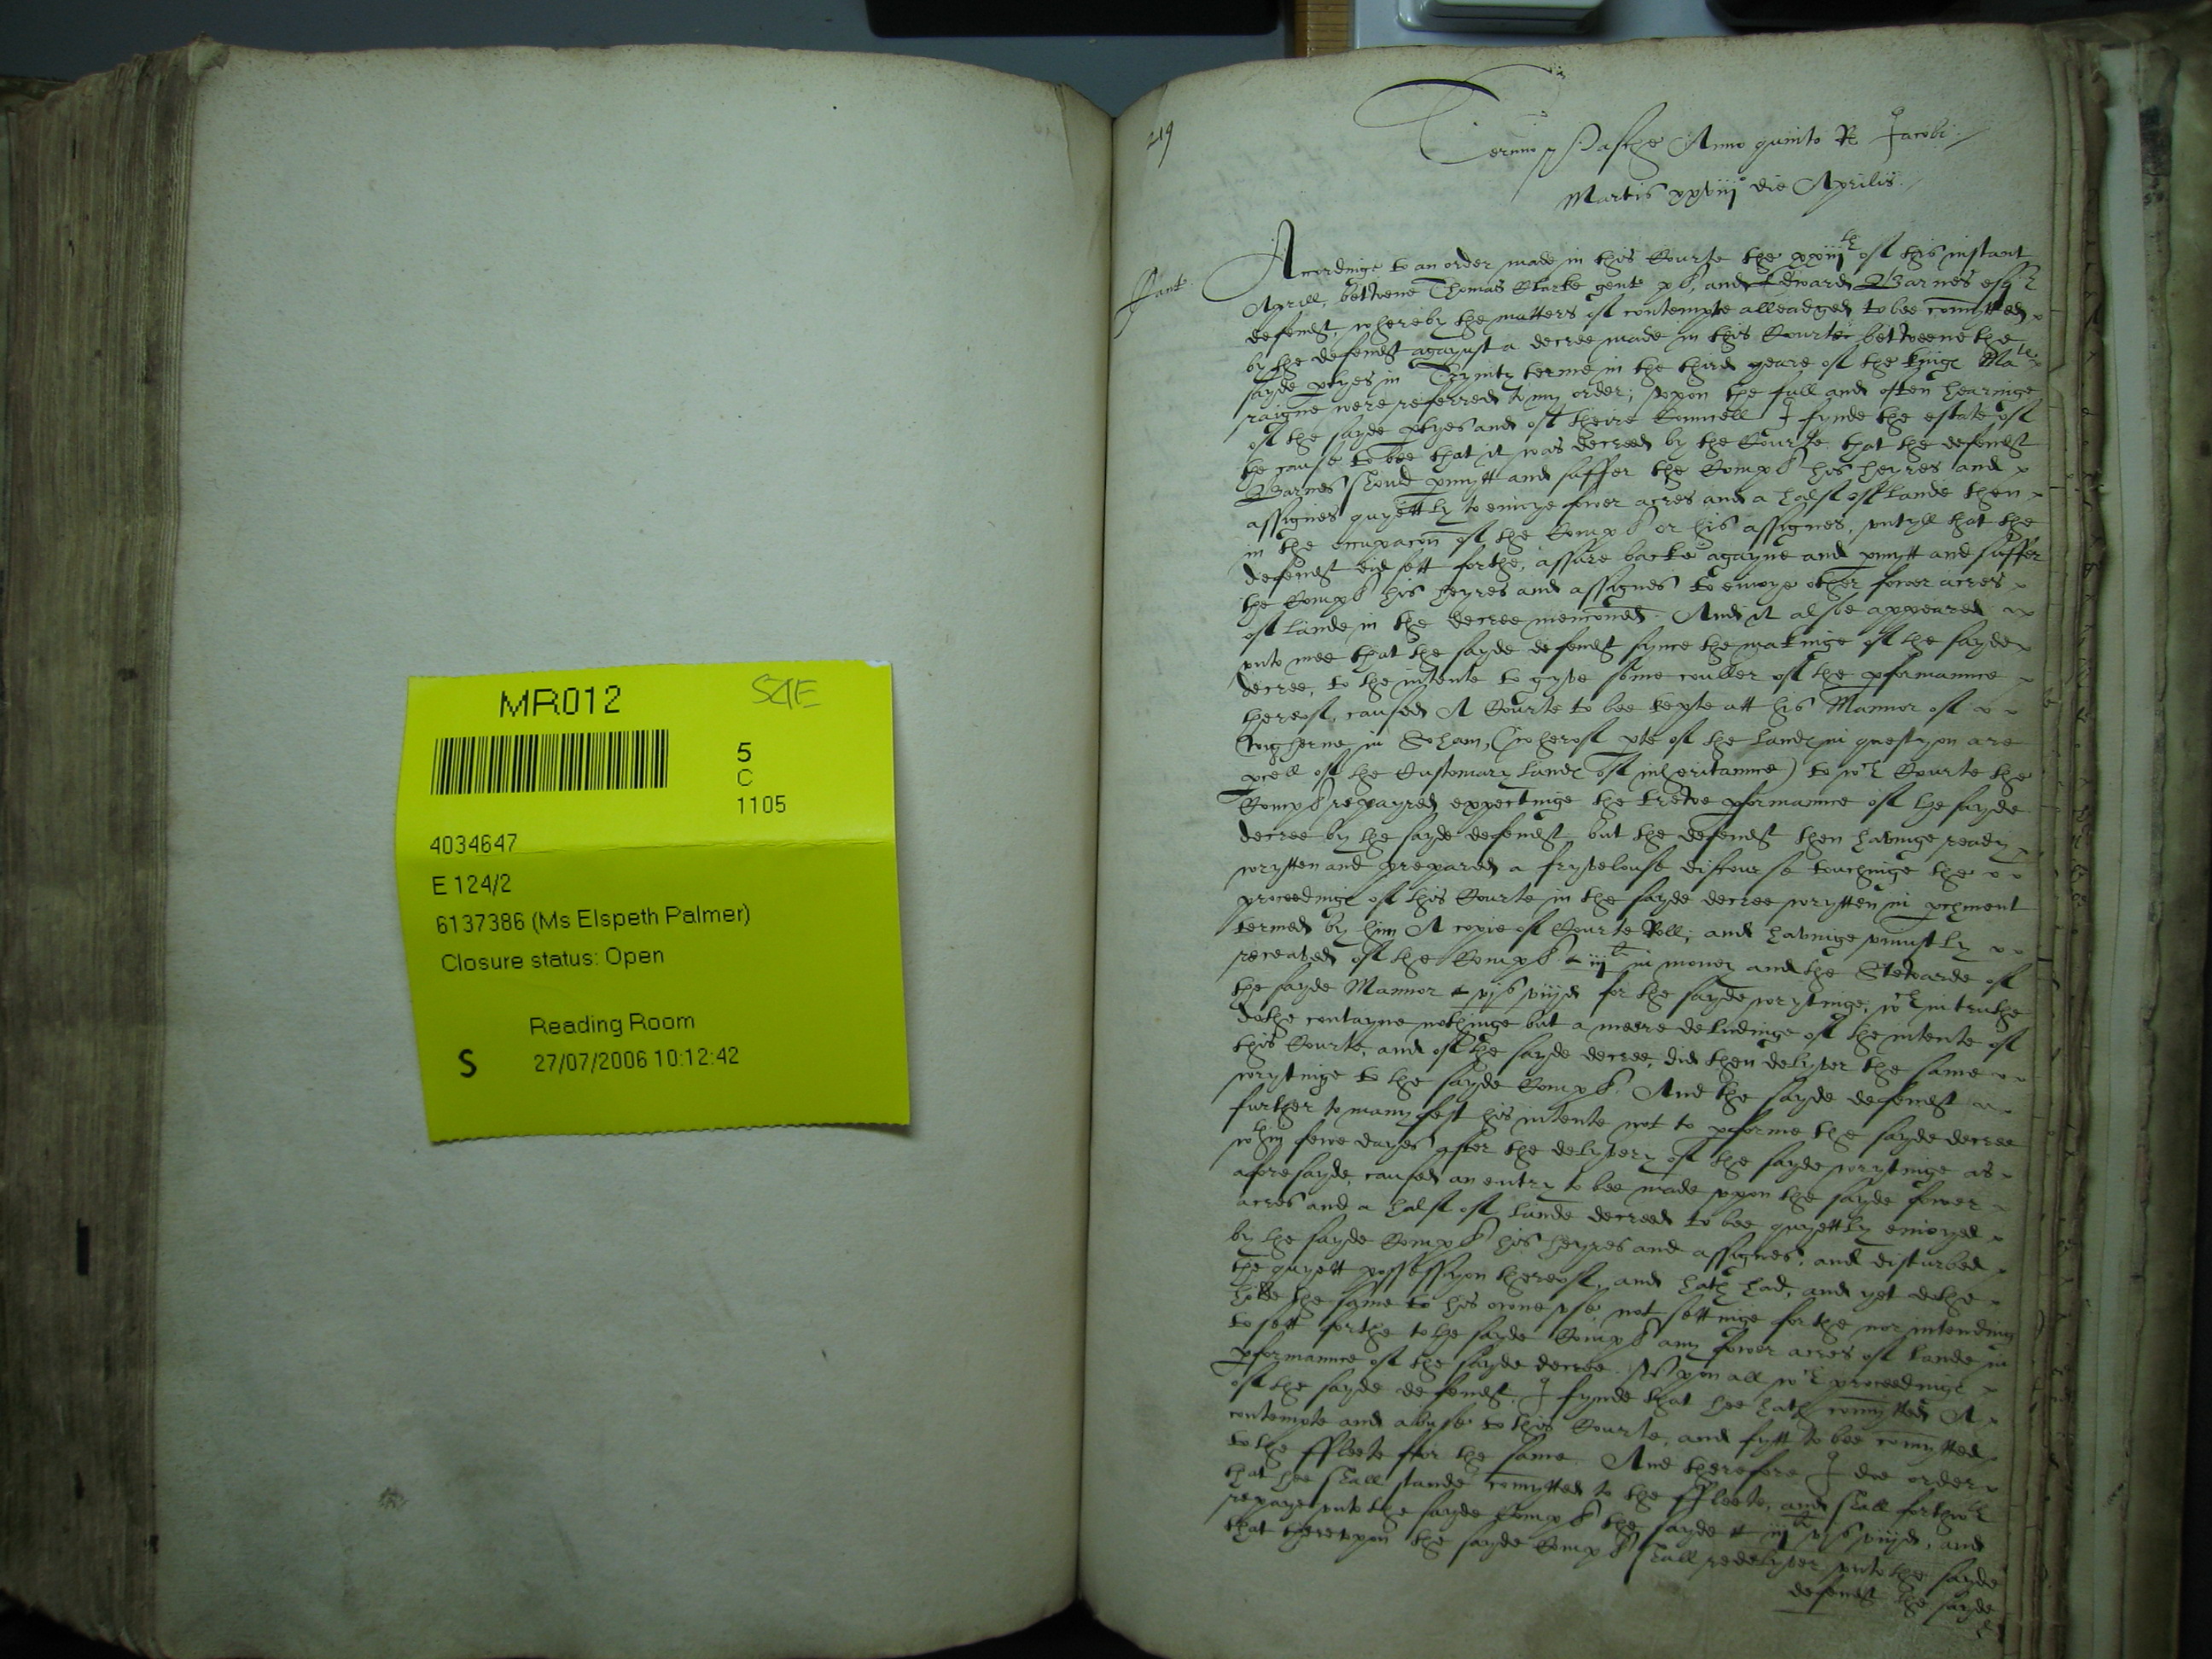 MR012
SAE
5
C
1105
4034647
E 124/2
6137386 (Ms Elspeth Palmer)
Closure status: Open
Reading Room
S
27/07/2006 10:12:42
219
Termino Pasche Anno quinto R Jacobi
Martis xxviij° die Aprilis
Cant
Accordinge to an order made in this Courte the xxiijth of this instant
Aprill, betweene Thomas Clarke gent pl, and Edward Barnes esqr
defendt, whereby the matters of contempte alleadged to bee comytted
by the defendt agaynst a decree made in this Courte betweene the
sayde ptyes in Trynity terme in the third yeare of the kings Mates
raigne were referred to my order; Vppon the full and often hearinge
of the sayde ptyes and of theire Councell I fynde the estate of
the cause to bee that it was decreed by the Courte that the defendt
Barnes should pmytt and suffer the Compl his heyres and
assignes quyettly to enioye fower acres and a half of lande then
in the occupacon of the Compl or his assignes, vntyll that the
defendt did sett forthe, assure backe agayne and pmytt and suffer
the Compl his heyres and assignes to enioye other fower acres
of lande in the decree menconed. And it alsoe appeared
vnto mee that the sayde defendt synce the makinge of the sayde
decree, to the intente to gyve some couller of the pformannce
thereof, caused A Courte to bee kepte att his Mannor of
in Soham, (whereof pte of the lands in questyon are
pcell of the Customary lands of inheritannce) to wch Courte the
Compl repayred expectinge the trewe pformannce of the sayde
decree by the sayde defendt but the defendt then havinge ready
wrytten and prepared a fryvelouse discourse touchinge the
proceedings of this Courte in the sayde decree wrytten in pchment
termed by him A copie of Courte Roll; and havinge vniustly
receaved of the Compl iijli in money and the Stewarde of
the sayde Mannor vjs viijd for the sayde wrytinge, wch in truthe
dothe contayne nothinge but a meere deludinge of the intente of
this Courte, and of the sayde decree, did then delyver the same
wrytinge to the sayde Compl. And the sayde defendt
further to manyfest his intente not to pforme the sayde decree
wthin fewe dayes after the delyvery of the sayde wrytinge as
aforesayde, caused an entry to bee made vppon the sayde fower
acres and a half of lande decreed to bee quyettly enioyed
by the sayde Compl his heyres and assignes, and disturbed
the quyett possessyon thereof, and hath had, and yet dothe
holde the same to his owne vse not settinge forthe nor intending
to sett forthe to the sayde Compl any fower acres of lande in
pformannce of the sayde decree. Vppon all wch proceedings
of the sayde defendt, I fynde that hee hath comytted A
contempte and abuse to this Courte, and fytt to bee comytted
to the ffleete for the same. And therefore I doe order
that hee shall stande comytted to the ffleete, and shall forthwth
repaye vnto the sayde Compl the sayde iijli vjs viijd, and
that therevppon the sayde Compl shall redelyver vnto the sayde
defendt the sayde